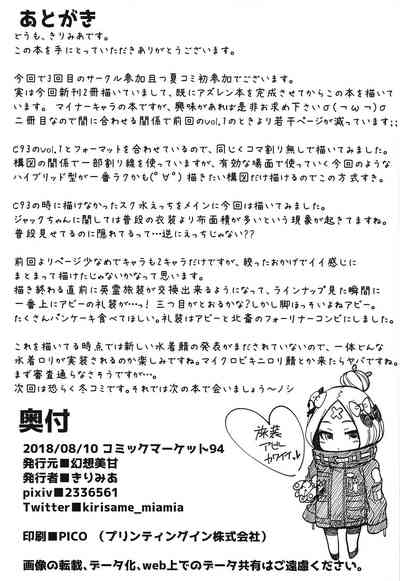 あとがき
どうも、きりみあです。
この本を手にとっていただきありがとうございます。
今回で3回目のサークル参加且つ夏コミ初参加でございます。
実は今回新刊2冊描いていまして、既にアズレン本を完成させてからこの本を描いて
います。 マイナーキャラの本ですが、興味があれば是非お求め下さいσ(つω⊂)σ
二冊目なので間に合わせる関係で前回のvol.1のときより若干ページが減っています;;
C93のvol.1とフォーマットを合わせているので、同じくコマ割り無しで描いてみました。
構図の関係で一部割り線を使っていますが、有効な場面で使っていく今回のような
ハイブリッド型が一番ラクかも(ﾟ∀ﾟ) 描きたい構図だけ描けるのでこの方式すき。
C93の時に描けなかったスク水えっちをメインに今回は描いてみました。
ジャックちゃんに関しては普段の衣装より布面積が多いという現象が起きてますね。
普段見せてるのに隠れてるって…逆にえっちじゃない??
前回よりページ少なめでキャラも2キャラだけですが、絞ったおかげでイイ感じに
まとまって描けたんじゃないかなって思います。
描き終わる直前に英霊旅装が交換出来るようになって、ラインナップ見た瞬間に
一番上にアビーの礼装が…! 三つ目がとおるかな?しかし脚ほっそいよねアビー。
たくさんパンケーキ食べてほしい。礼装はアビーと北斎のフォーリナーコンビにしました。
これを描いてる時点では新しい水着鯖の発表がまだされていないので、一体どんな
水着ロリが実装されるのか楽しみですね。マイクロビキニロリ鯖とか来たらヤバですね。
まず審査通らなさそうですが…。
次回は恐らく冬コミです。それでは次の本で会いましょう～ノシ
奥付
2018/08/10 コミックマーケット94
発行元■幻想美甘
発行者■きりみあ
pixiv■2336561
Twitter■kirisame_miamia
印刷■PICO （プリンティングイン株式会社）
画像の転載、データ化、web上でのデータ共有はご遠慮ください。
旅装
アビー
カワイイ